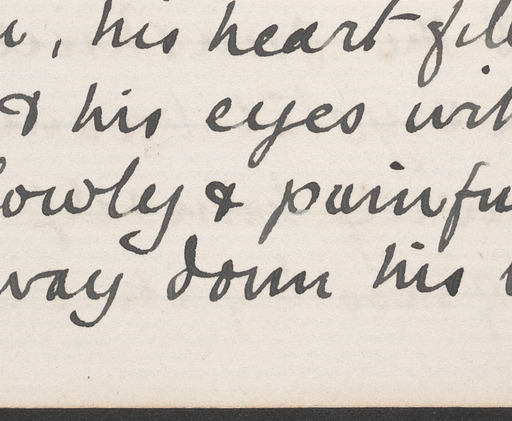 , his heart fil
& his eyes wit
lowly & painfu
way down his